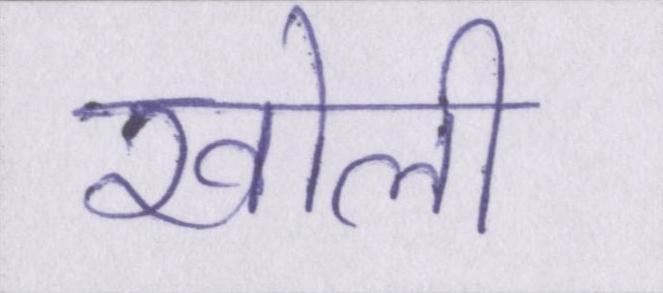 खोली